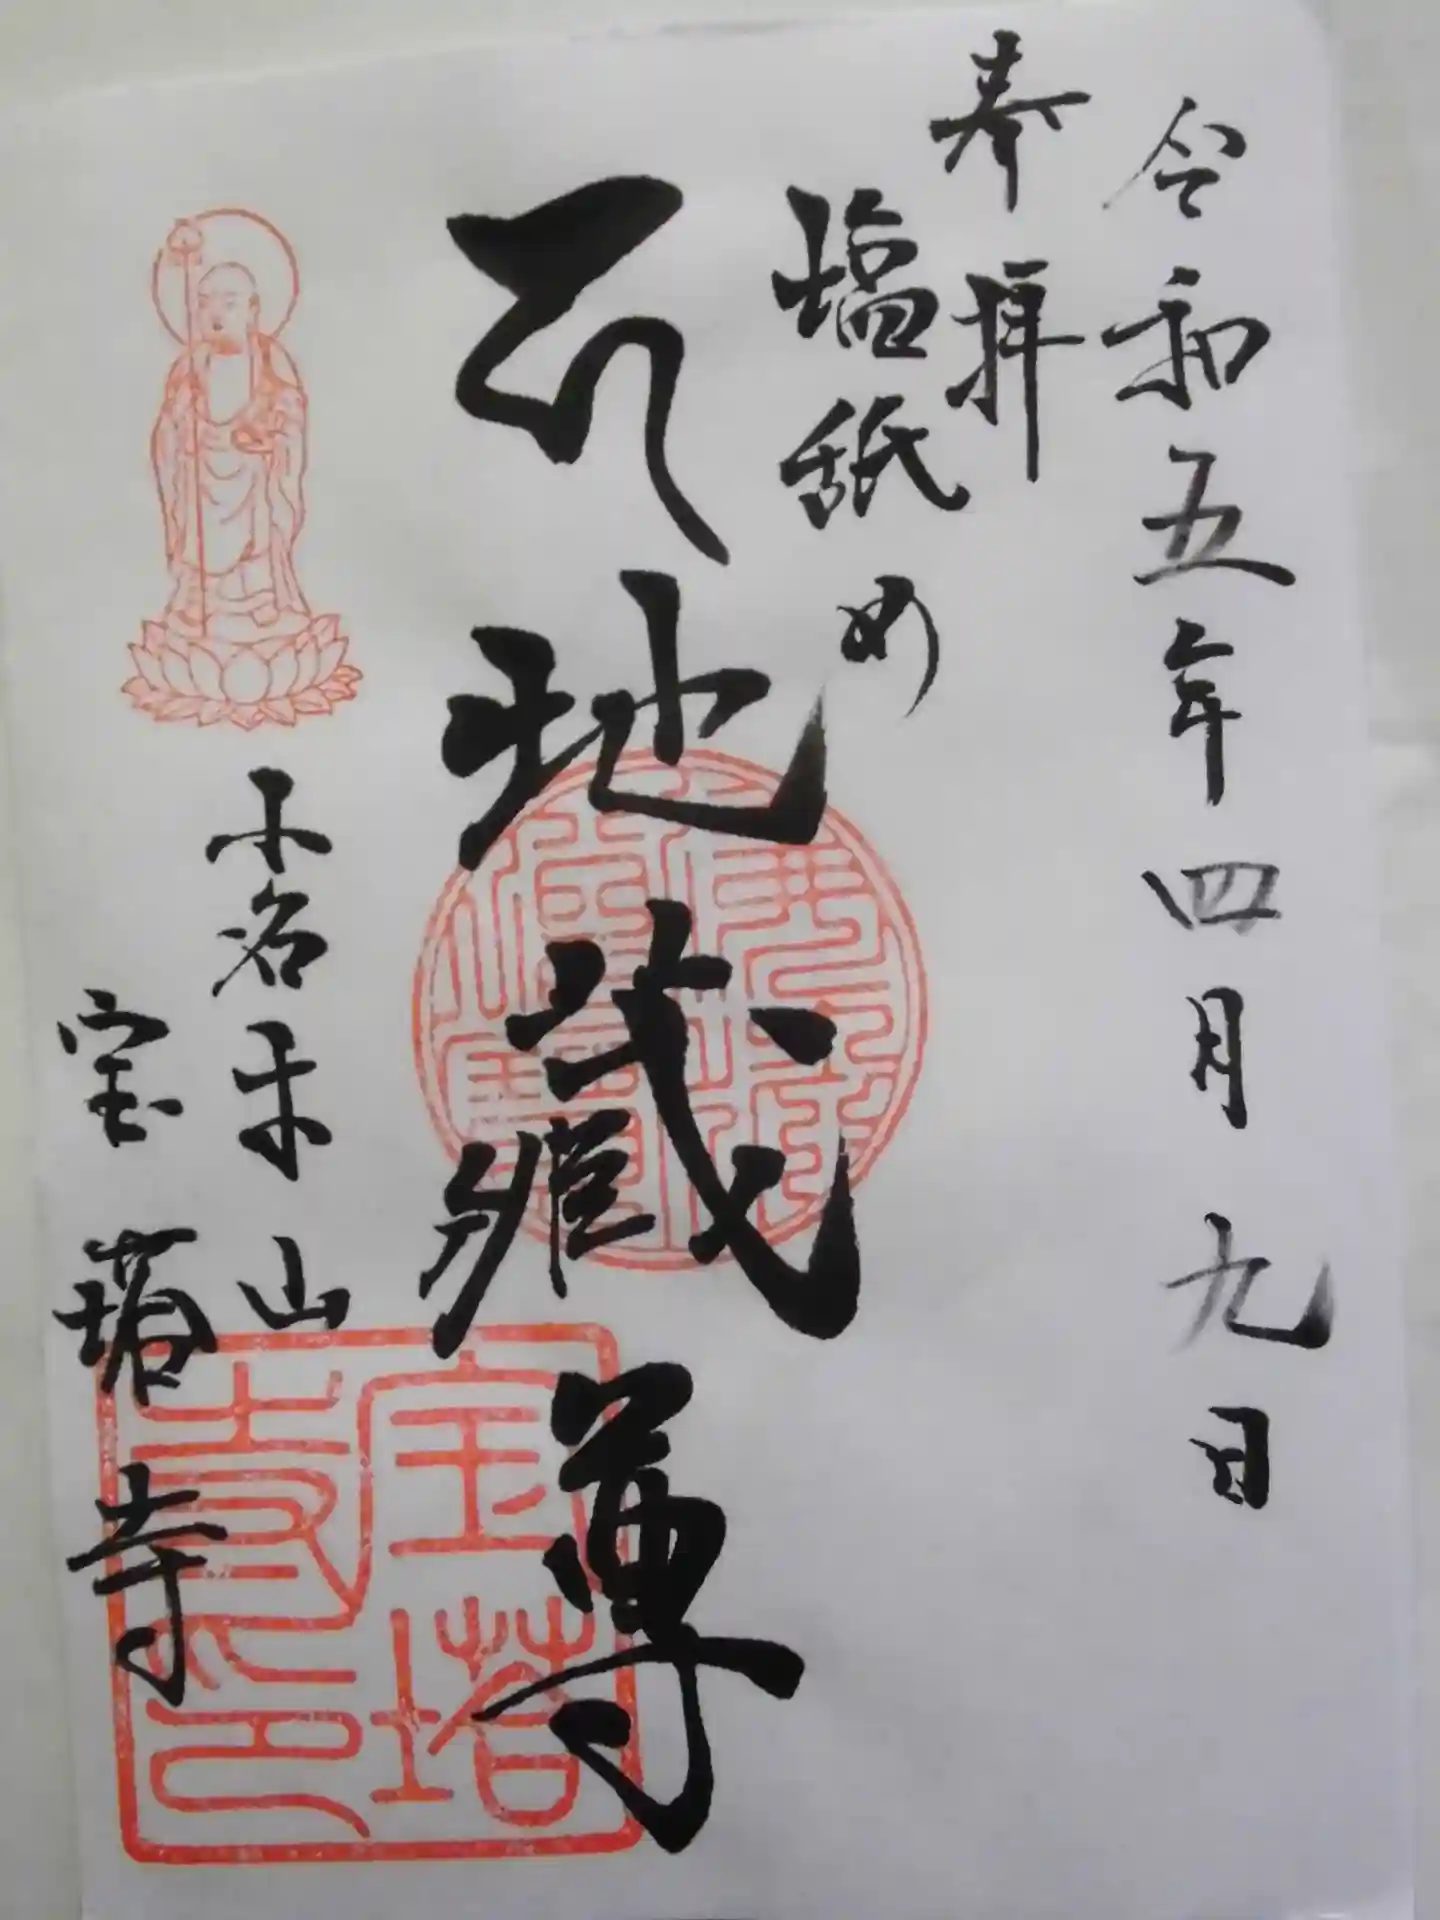 令和五年四月九日
奉拝
塩舐め
地蔵尊
小名木山
宝塔寺
宝塔
寺印